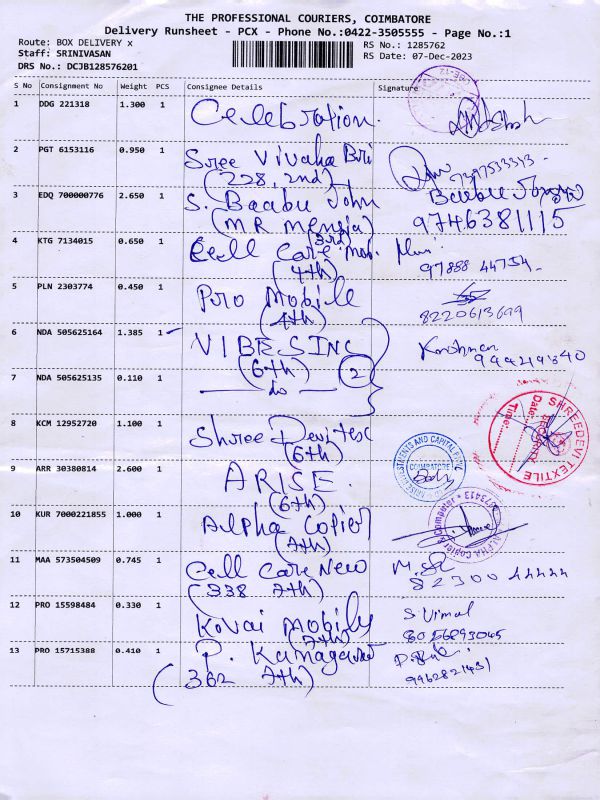 THE PROFESSIONAL COURIERS, COIMBATORE
Delivery Runsheet - PCX - Phone No.:0422-3505555 - Page No.:1
Route: BOX DELIVERY x
RS No.: 1285762
Staff: SRINIVASAN
RS Date: 07-Dec-2023
DRS No.: DCJB128576201
S No Consignment No Weight PCS Consignee Details Signature
1 DDG 221318 1.300 1 Celebration.
2 PGT 6153116 0.950 1 Sree Vivaha Bri
(228, 2nd) 7397533313
3 EDQ 700000776 2.650 1 S. Baabu John Baabu
(MR Mensia) 9746381115
(3rd)
4 KTG 7134015 0.650 1 Cell Care Mob. Plus
(4th) 97888 44754
5 PLN 2303774 0.450 1 Pro Mobile
(4th) 8220613699
6 NDA 505625164 1.385 1 VIBES INC
(6th) 2
7 NDA 505625135 0.110 1 — do —
8 KCM 12952720 1.100 1 Shree Devitex
(6th)
SHREEDEVI TEXTILE
Date:
Time:
SECURITY
9 ARR 30380814 2.600 1 ARISE.
(6th)
INVESTMENTS AND CAPITAL
COIMBATORE
10 KUR 7000221855 1.000 1 Alpha Copier
(7th)
11 MAA 573504509 0.745 1 Cell Care New
(338 7th) 82300 44444
12 PRO 15598484 0.330 1 Kovai Mobily S. Vimal
(7th)
13 PRO 15715388 0.410 1 P.
(362 7th)